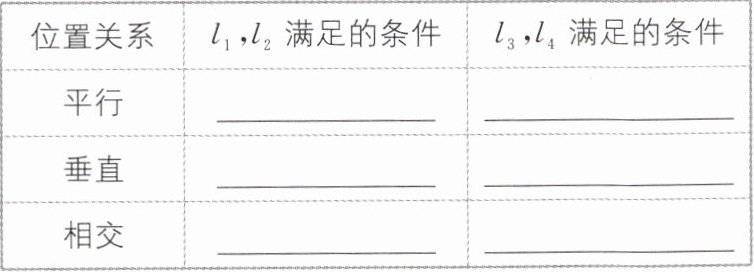 位置关系 l₁,l₂ 满足的条件 l₃,l₄ 满足的条件
平行
垂直
相交